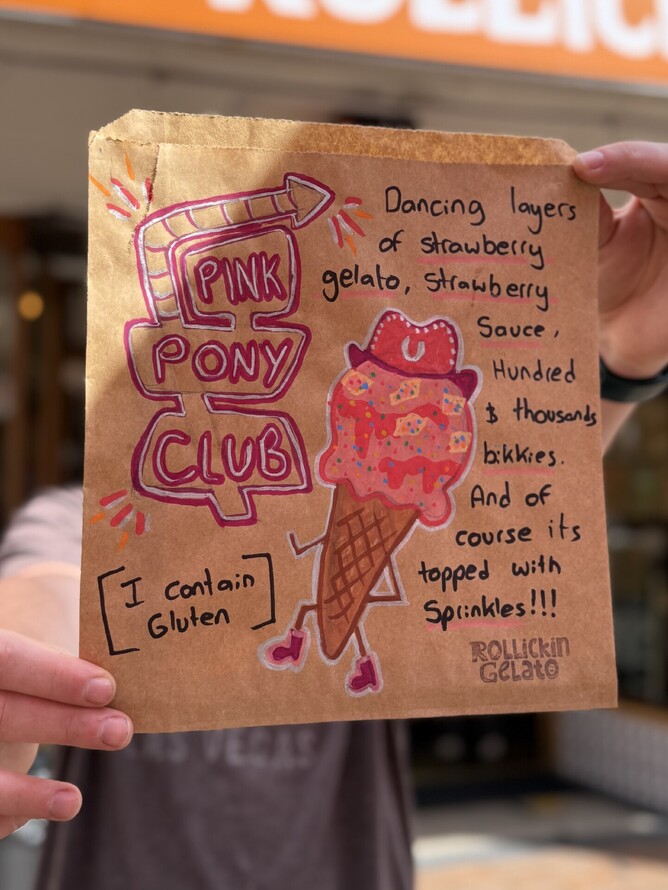 ROLLICK
PINK
PONY
CLUB
Dancing layers
of strawberry
gelato, strawberry
Sauce,
Hundred
$ thousands
bikkies.
And of
course its
topped with
Sprinkles!!!
[I contain
Gluten]
ROLLICKIN
GELATO
VEGAS